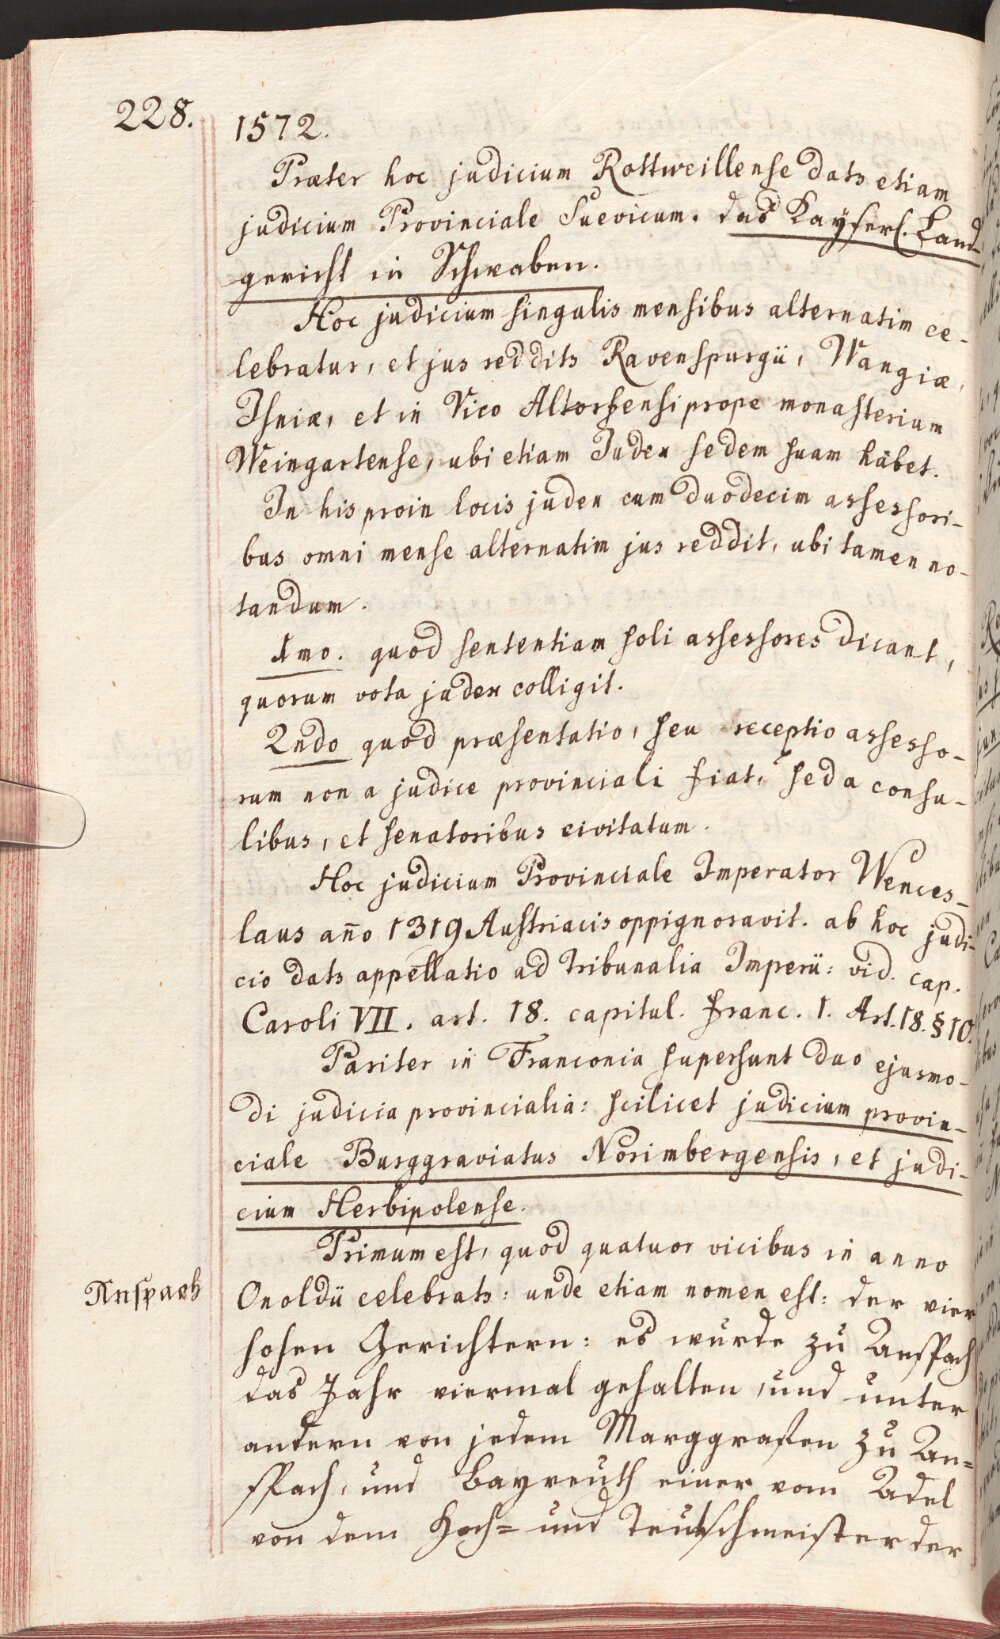 228.
1572.
Præter hoc judicium Rottweillense datr etiam
judicium Provinciale Suevicum. das Kaÿserl. Land-
gericht in Schwaben.
Hoc judicium singulis mensibus alternatim ce-
lebratur, et jus redditr Ravenspurgii, Wangiæ,
Isniæ, et in Vico Altorfensi prope monasterium
Weingartense, ubi etiam Judex sedem suam habet.
In his proin locis judex cum duodecim assessori-
bus omni mense alternatim jus reddit, ubi tamen no-
tandum.
1mo. quod sententiam soli assessores dicant,
quorum vota judex colligit.
2ndo quod præsentatio, seu receptio assesso-
rum non a judice provinciali fiat, sed a consu-
libus, et senatoribus civitatum.
Hoc judicium Provinciale Imperator Wences-
laus año 1319 Austriacis oppignoravit. ab hoc judi-
cio datr appellatio ad tribunalia Imperii: vid. cap.
Caroli VII. art. 18. capitul. franc. 1. Art. 18. § 10.
Pariter in Franconia supersunt duo ejusmo-
di judicia provincialia: scilicet judicium provin-
ciale Burggraviatus Norimbergensis, et judi-
cium Herbipolense.
Primum est, quod quatuor vicibus in anno
Anspach
Onoldii celebratr: unde etiam nomen est: der vier
hohen Gerichtern: es wurde zu Anspach
das Jahr viermal gehalten, und unter
andern von jedem Marggrafen zu An=
spach, und Bayreuth einer vom Adel
von dem Hoch= und Teutschmeister der